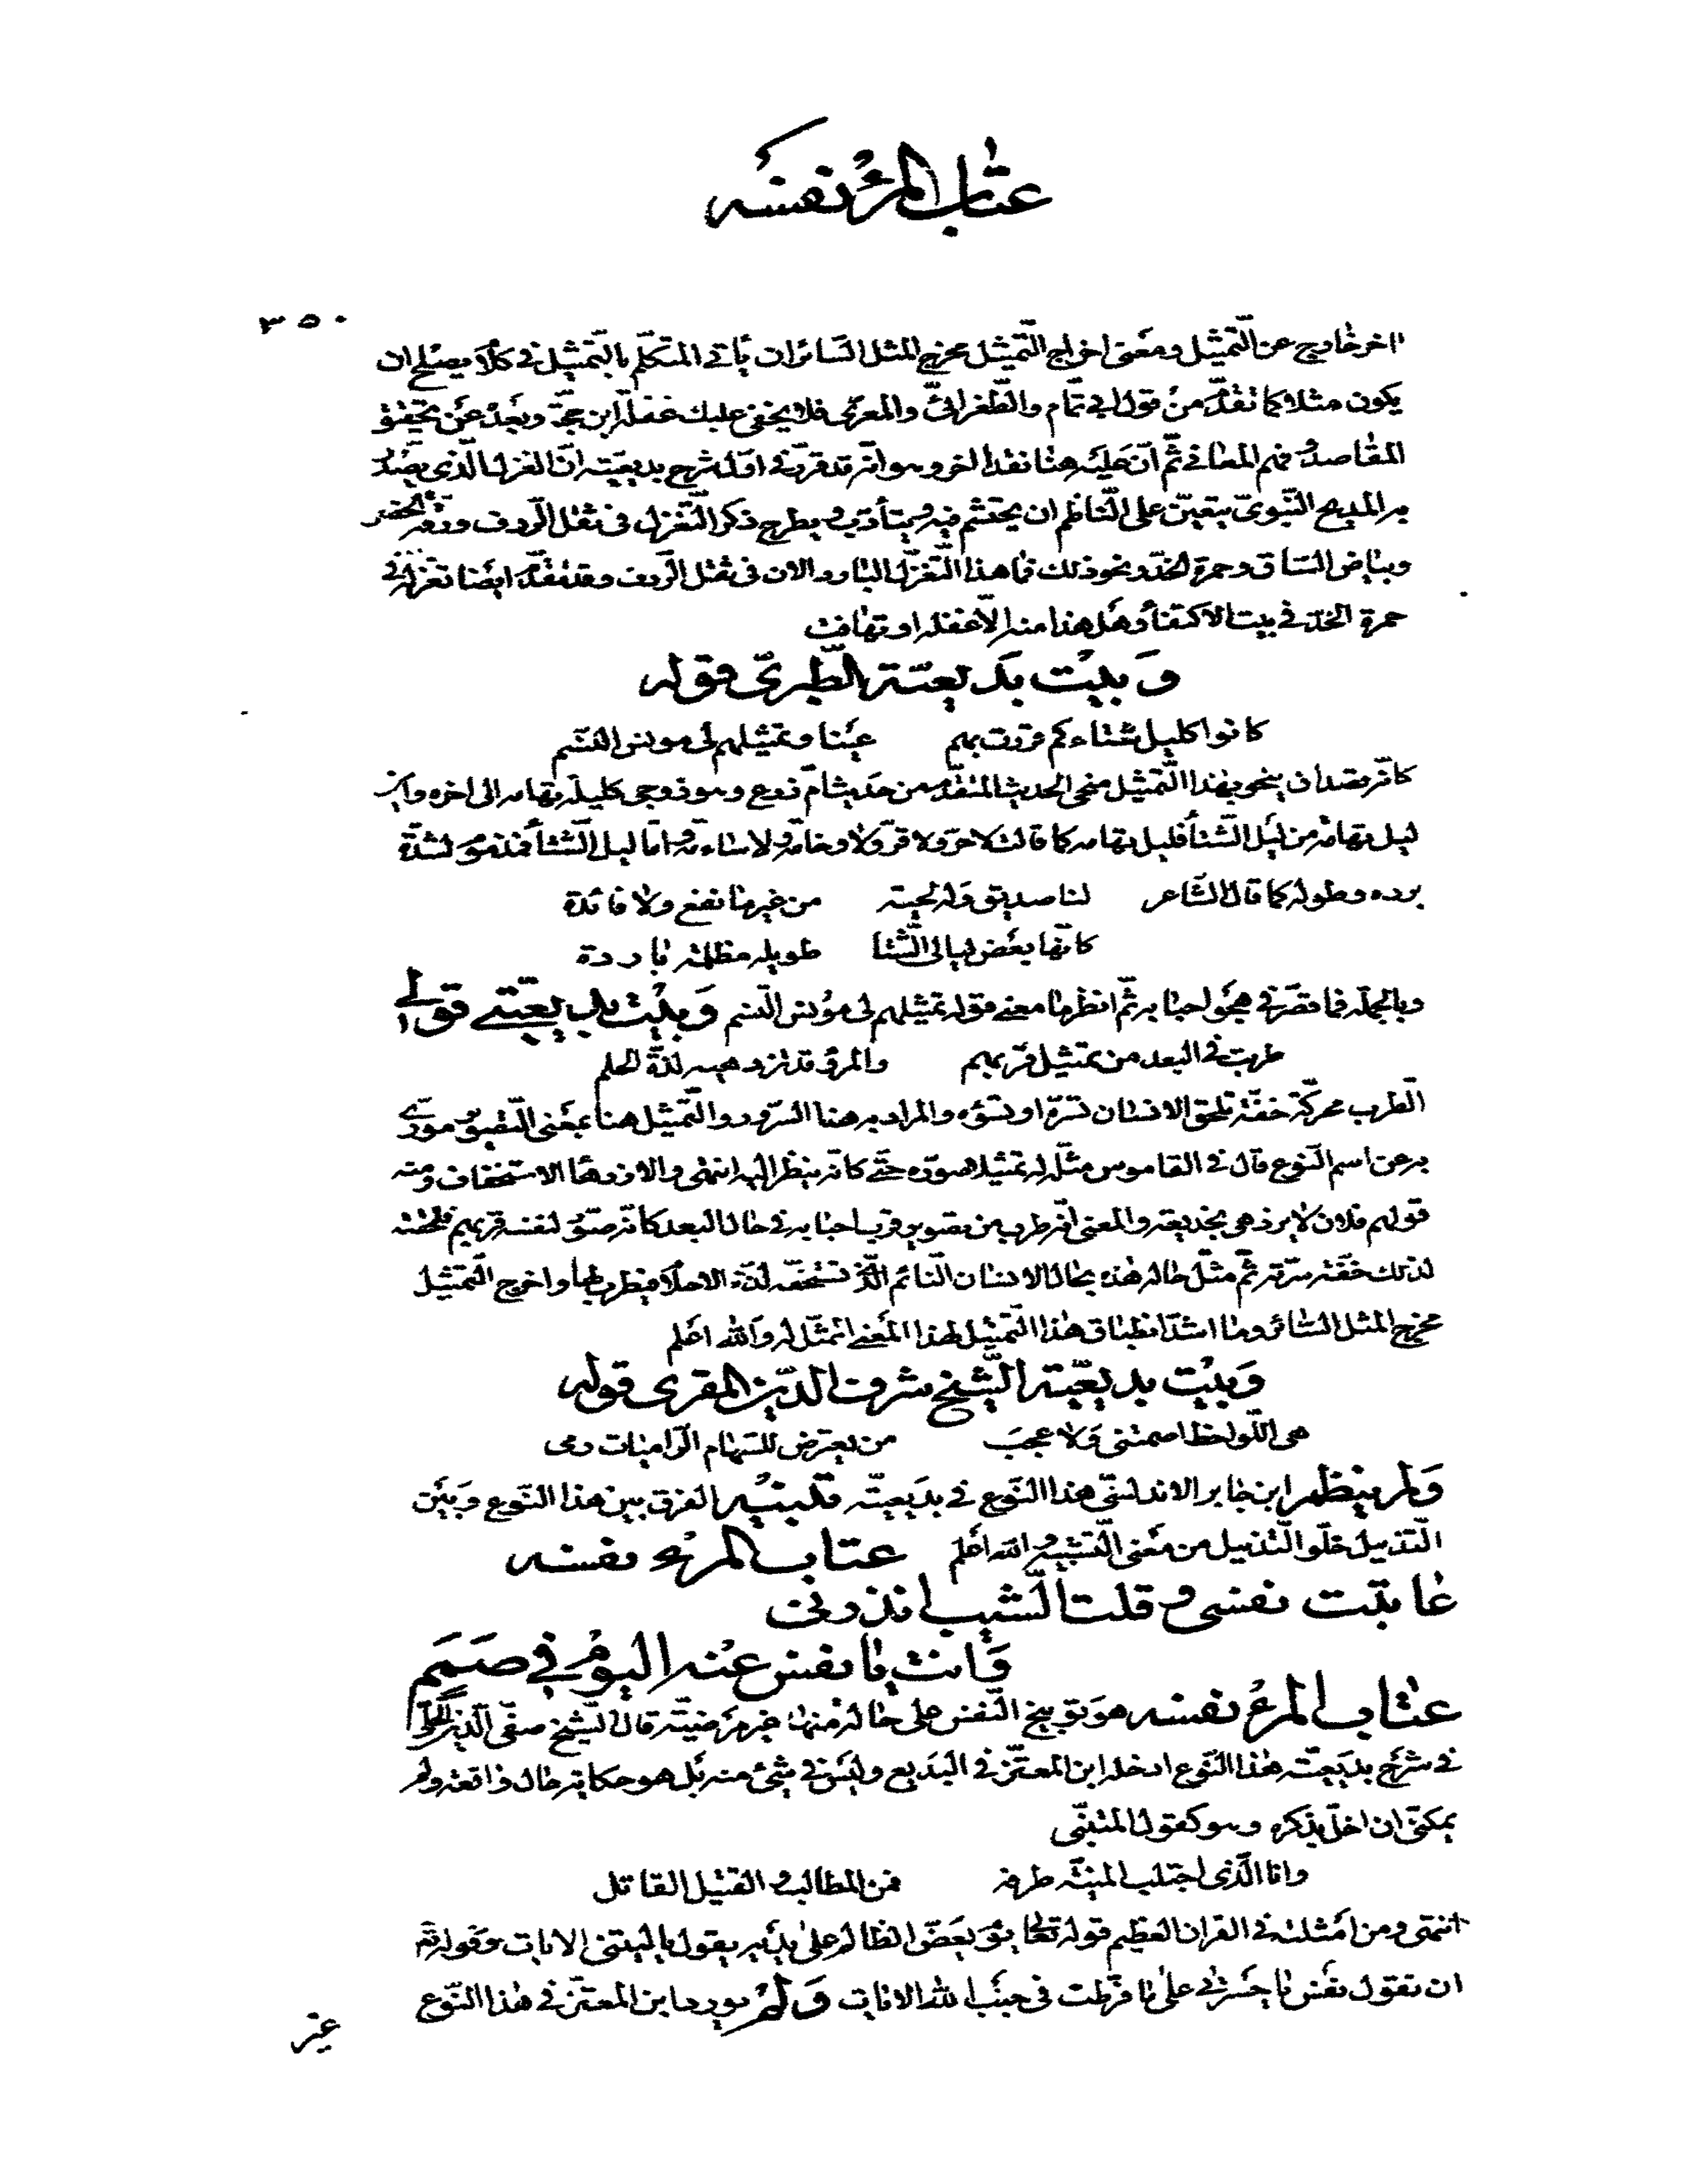 عتاب المرء نفسه
٣٥٠
اخر خارج عن التّمثيل ومعنى اخراج التّمثيل مخرج المثل السّائر ان يأتى المتكلّم بالتمثيل فى كلام يصلح ان
يكون مثلا كما تقدّم من قول ابى تمّام والطّغرائى والمعرّى فلا يخفى عليك غفلة ابن حجّة وبعده عن تحقيق
المقاصد وفهم المعانى ثمّ انّ عليه هنا نقدا اخر وهو انّه قد قرّر فى اوّل شرح بديعيّته انّ الغزل الّذى يصدّر
به المديح النّبوىّ يتعيّن على النّاظم ان يحتشم فيه ويتأدّب ويطرح ذكر التّغزل فى ثقل الرّدف ورقّة الخصر
وبياض السّاق وحمرة الخدّ ونحو ذلك فما هذا التّغزّل البارد الان فى ثقل الرّدف وقد تقدّم ايضا تغزله فى
حمرة الخدّ فى بيت الاكتفاء وهل هذا منه الّا غفلة او تهافت
وبيت بديعيّة الطّبرىّ قوله
كانوا كليل شتاء كم قررت بهم عينا وتمثيلهم لى مونس النّسم
كانّه قصد ان ينحو بهذا التّمثيل منحى الحديث المتقدّم من حديث امّ زرع وهو زوجى كليل تهامة الى اخره واين
ليل تهامة من ليل الشّتاء فليل تهامة كما قالت لا حرّ ولا قرّ ولا وخامة ولا سامة وامّا ليل الشّتاء فمذموم لشدّة
برده وطوله كما قال الشّاعر لنا صديق وله لحية من غير ما نفع ولا فائدة
كانّها بعض ليالى الشّتا طويلة مظلمة باردة
وبالجملة فما قصّر فى هجو احبابه ثمّ انظر ما معنى قوله تمثيلهم لى مونس النّسم وبيت بديعيّتى قولى
طربت فى البعد من تمثيل قربهم والمرء قد تزدهيه لذّة الحلم
الطّرب محرّكة خفّة تلحق الانسان تسرّه او تسوّه والمراد به هنا السّرور والتّمثيل هنا بمعنى التّصوير مورّى
به عن اسم النّوع قال فى القاموس مثّله له تمثيلا صوّره حتّى كانّه ينظر اليه انتهى والازدهاء الاستخفاف ومنه
قولهم فلان لا يزدهى بخديعة والمعنى انّه طرب من تصوير قرب احبابه فى حال البعد كانّه صوّر لنفسه قربهم فلحقته
لذلك خفّة سرّته ثمّ مثّل حاله هذه بحال الانسان النّائم الّذى تستخفّه لذّة الاحلام فيطرب لها واخرج التّمثيل
مخرج المثل السّائر وما اشدّ انطباق هذا التّمثيل لهذا المعنى الممثّل له والله اعلم
وبيت بديعيّة الشّيخ شرف الدّين المقرى قوله
هى اللّواحظ اصمتنى ولا عجب من يعترض للسّهام الرّاميات رمى
ولم ينظم ابن جابر الاندلسىّ هذا النّوع فى بديعيّته تنبيه الفرق بين هذا النّوع وبين
التّذييل خلّو التّذييل من معنى التّشبيه والله اعلم عتاب المرء نفسه
عاتبت نفسى وقلت الشّيب انذرنى
وانت يا نفس عنه اليوم فى صمم
عتاب المرء نفسه هو توبيخ النّفس على حالة منها غير مرضيّة قال الشّيخ صفىّ الدّين الحلّى
فى شرح بديعيّته هذا النّوع ادخله ابن المعتزّ فى البديع وليس فى شىء منه بل هو حكاية حال واقعة ولم
يمكنّى ان اخلّ بذكره وهو كقول المتنبّى
وانا الّذى اجتلب المنيّة طرفه فمن المطالب والقتيل القاتل
انتهى ومن امثلته فى القران العظيم قوله تعالى يوم يعضّ الظّالم على يديه يقول يا ليتنى الايات وقوله تعالى
ان تقول نفس يا حسرتى على ما فرّطت فى جنب الله الايات ولم يورد ابن المعتزّ فى هذا النّوع
غير